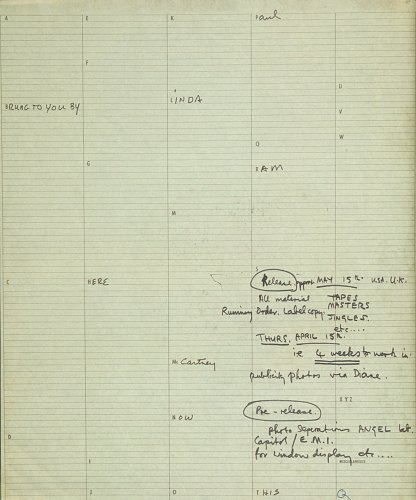 A E K Paul
F
U
BRUNG TO YOU BY LINDA
V
W
O
G RAM
M
C HERE
Release MAY 15th. USA. U.K.
All material TAPES
MASTERS
Running Order. Label copy. JINGLES.
etc....
THURS. APRIL 15th.
ie 4 weeks to work in.
Mc Cartney
publicity photos via Diane.
XYZ
NOW Pre-release.
photo Seperations ANGEL
D Capitol / E.M.I.
for window display etc....
MISCELLANEOUS
I
J O THIS